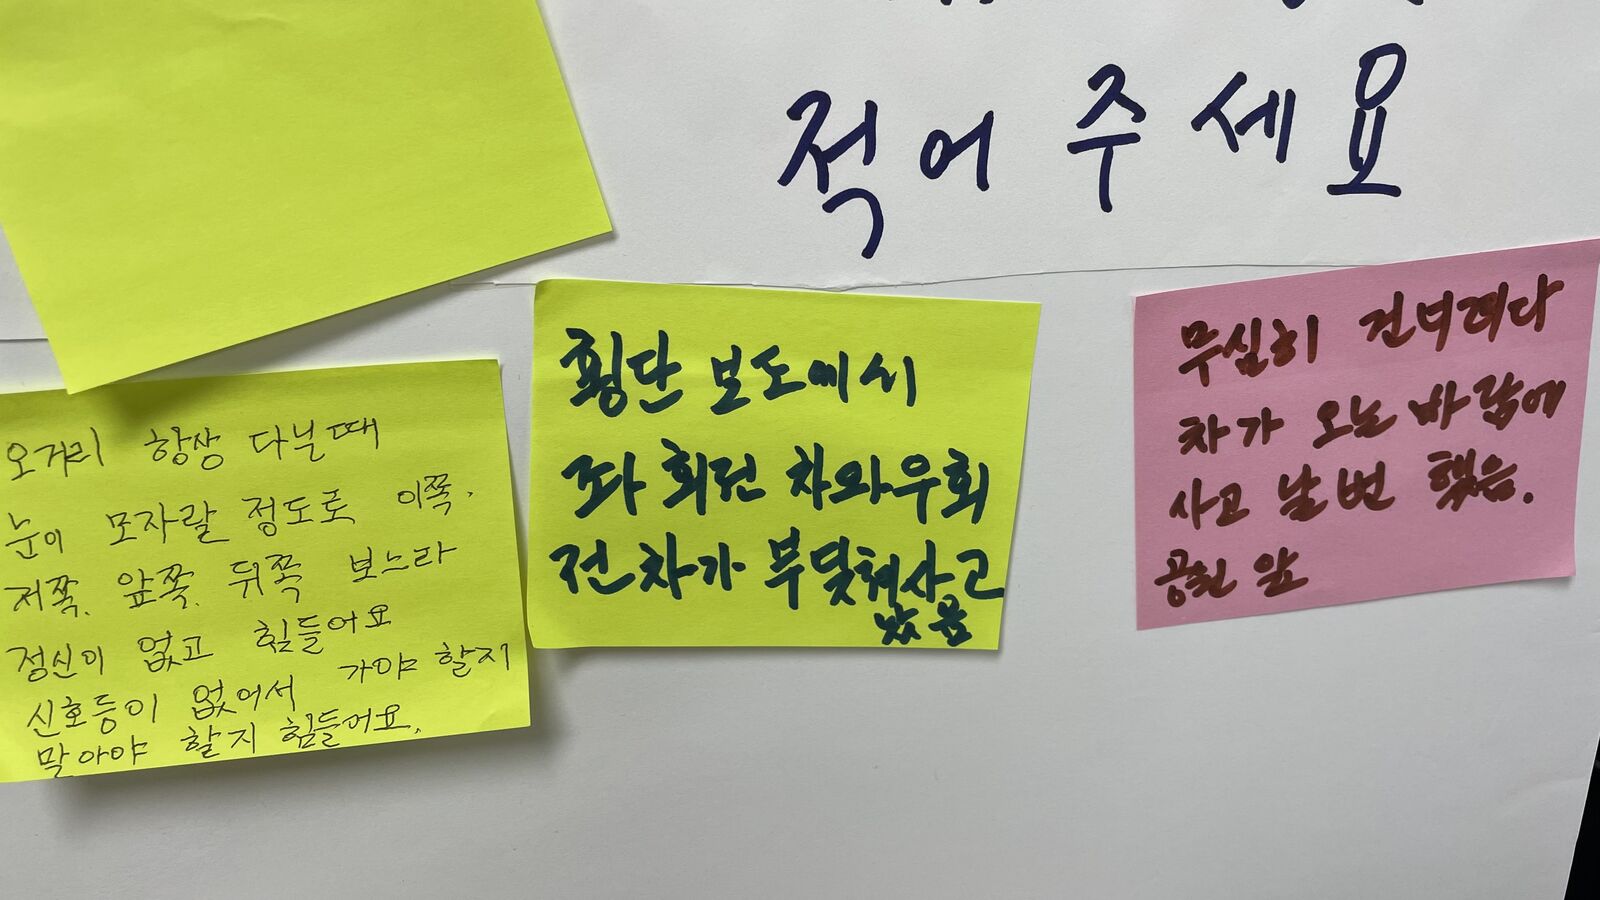 적어 주세요
오거리 항상 다닐때
눈이 모자랄 정도로 이쪽.
저쪽. 앞쪽. 뒤쪽 보느라
정신이 없고 힘들어요
신호등이 없어서 가야 할지
말아야 할지 힘들어요.
횡단 보도에서
좌 회전 차와우회
전차가 부딫쳐사고
났음
무심히 건너려다
차가 오는 바람에
사고 날번 했음.
공원 앞